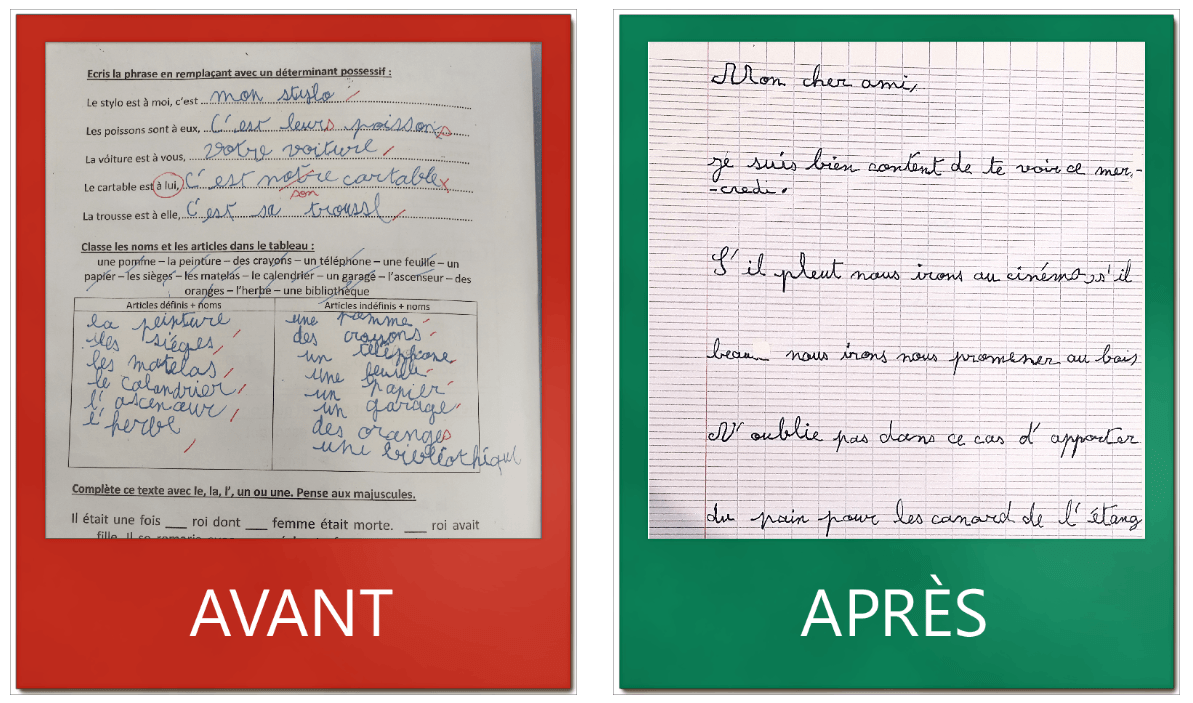 Ecris la phrase en remplaçant avec un déterminant possessif :
Le stylo est à moi, c'est ... mon stylo
Les poissons sont à eux, ... C'est leurs poissons
La voiture est à vous, ... votre voiture
Le cartable est à lui, C'est notre cartable
son
La trousse est à elle, C'est sa trousse
Classe les noms et les articles dans le tableau :
une pomme – la peinture – des crayons – un téléphone – une feuille – un
papier – les sièges – les matelas – le calendrier – un garage – l'ascenseur – des
oranges – l'herbe – une bibliothèque
Articles définis + noms
la peinture
les sièges
les matelas
le calandrier
l'ascenœur
l'herbe
Articles indéfinis + noms
une pomme
des crayons
un téléphone
une feuille
un papier
un garage
des oranges
une bibliothèque
Complète ce texte avec le, la, l', un ou une. Pense aux majuscules.
Il était une fois ___ roi dont ___ femme était morte. ___ roi avait
AVANT
Mon cher ami,
je suis bien content de te voir ce mer-
-credi.
S'il pleut nous irons au cinéma, s'il
beau nous irons nous promener au bois
N'oublie pas dans ce cas d'apporter
du pain pour les canard de l'étang
APRÈS